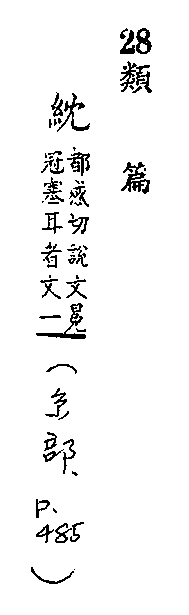 28
類篇
紞 都感切說文冕
冠塞耳者文一
(糸部、
p.
485
)